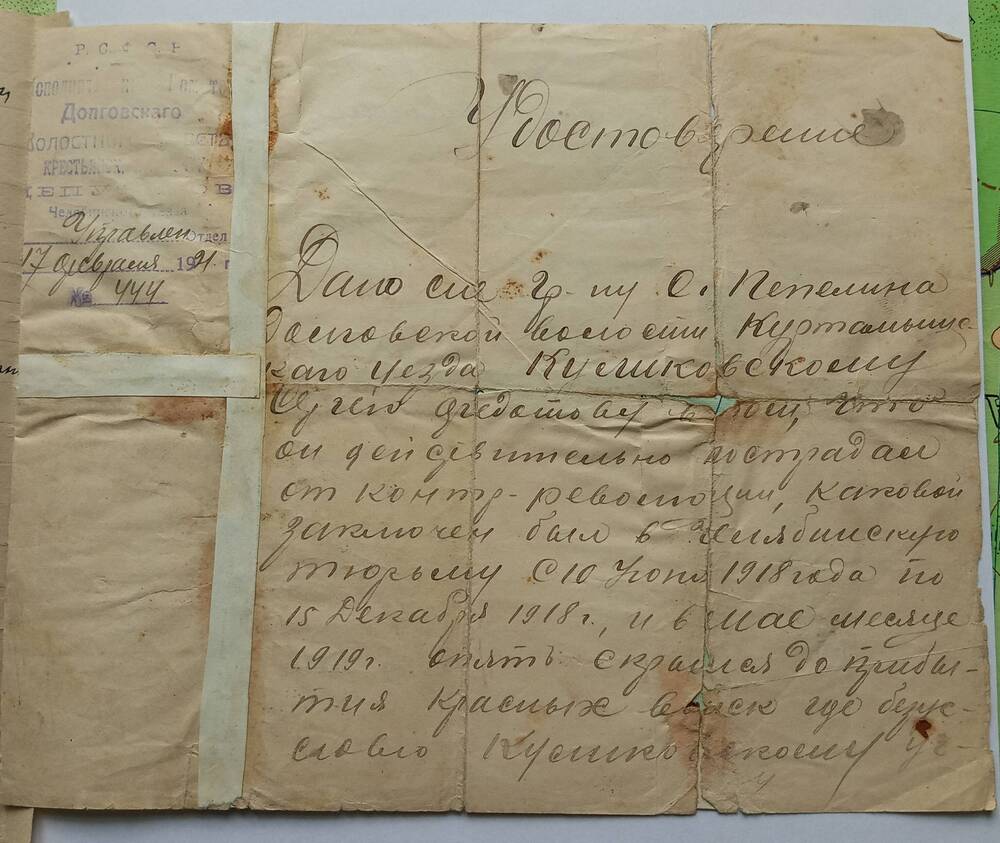 Р. С. Ф. С. Р
Долговскаго
КРЕСТЬЯНСК.
Челябинского уезда
Управлен Отдел
17 февраля 1921 г
№ 444
Удостоверение
Дано сие Гр-ну С. Пепелина
Долговской волости Куртамышс-
каго уезда Куликовскому
Сергею Федотову в том, что
он действительно пострадал
от контр-революции, каковой
заключен был в Челябинскую
тюрьму С 10 Июня 1918 года по
15 Декабря 1918 г., и в Мае месяце
1919 г. опять скрылся до прибы-
тия Красных войск где безус-
ловно Куликовскому уг-